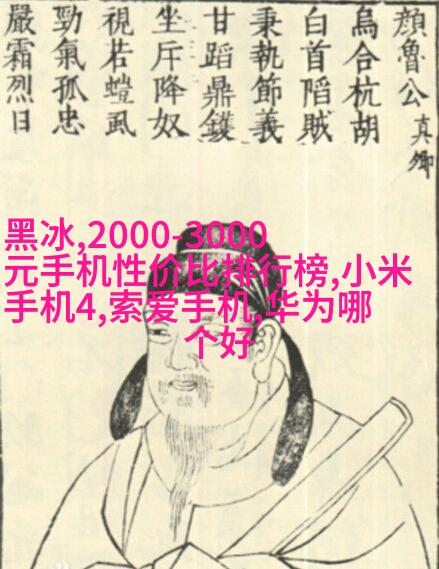 顔魯公真卿
烏合杭胡
白首蹈賊
秉執節義
甘蹈鼎鑊
坐斥降奴
視若螘虱
勁氣孤忠
嚴霜烈日
黑冰,2000-3000
元手机性价比排行榜,小米
手机4,索爱手机,华为哪
个好